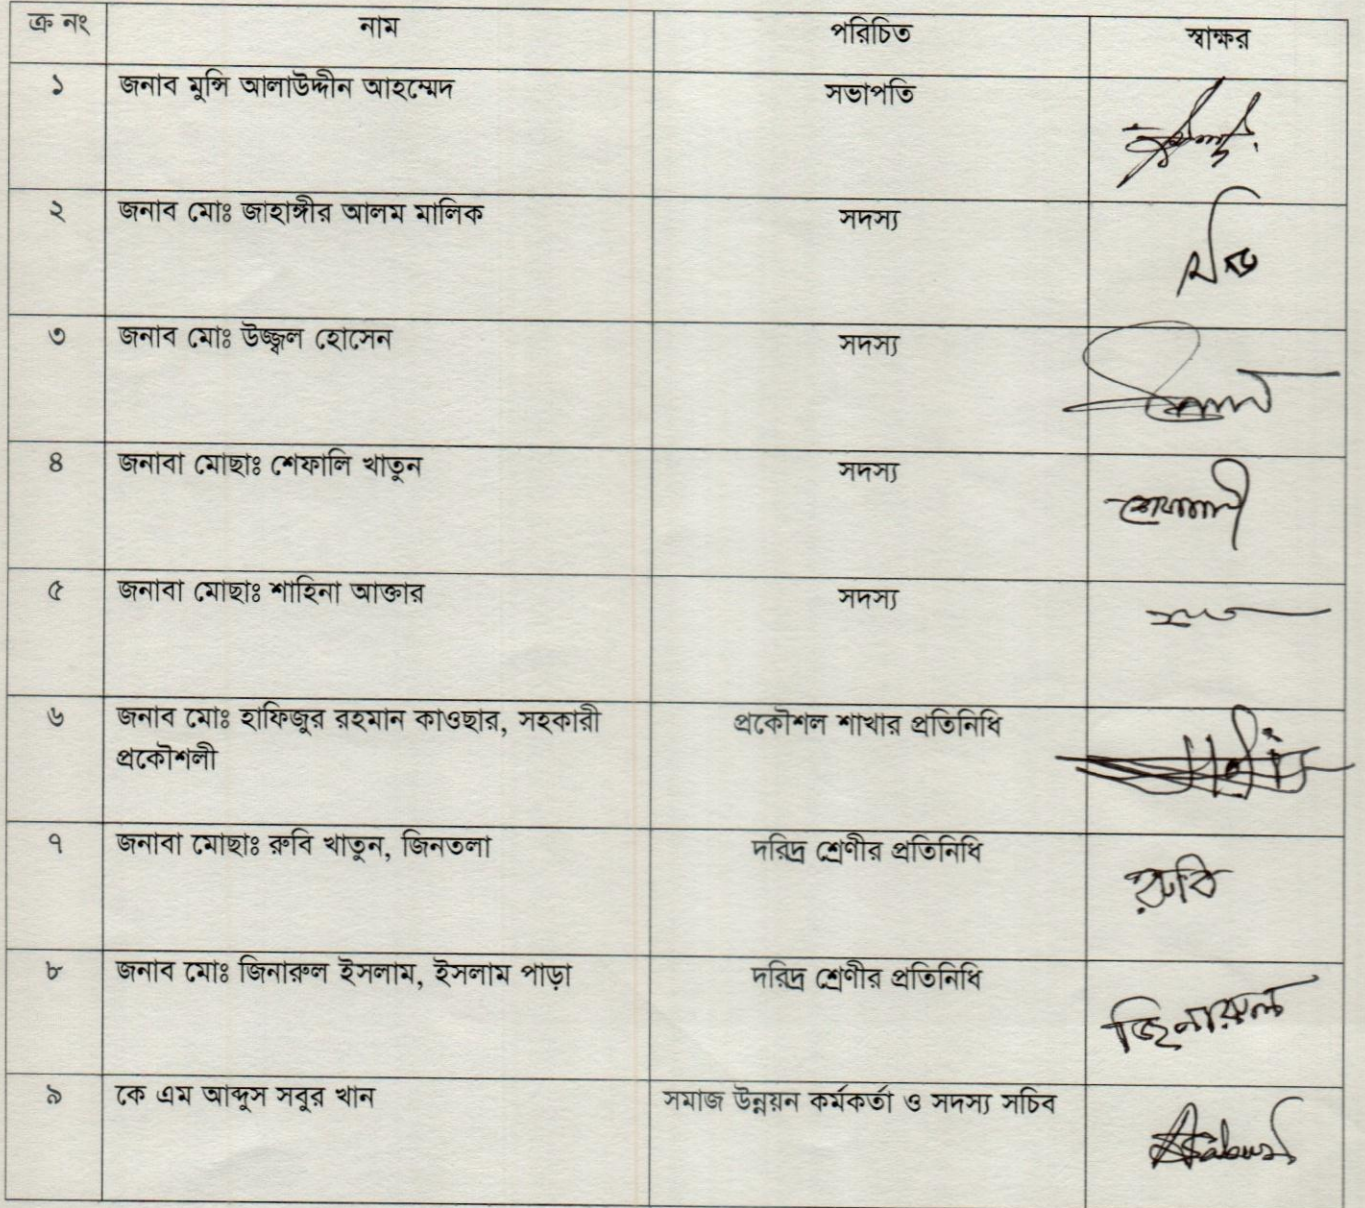 ক্র নং নাম পরিচিত স্বাক্ষর
১ জনাব মুন্সি আলাউদ্দীন আহম্মেদ সভাপতি
২ জনাব মোঃ জাহাঙ্গীর আলম মালিক সদস্য
৩ জনাব মোঃ উজ্জ্বল হোসেন সদস্য
৪ জনাবা মোছাঃ শেফালি খাতুন সদস্য
শেফালী
৫ জনাবা মোছাঃ শাহিনা আক্তার সদস্য
৬ জনাব মোঃ হাফিজুর রহমান কাওছার, সহকারী প্রকৌশল শাখার প্রতিনিধি
প্রকৌশলী
৭ জনাবা মোছাঃ রুবি খাতুন, জিনতলা দরিদ্র শ্রেণীর প্রতিনিধি
রুবি
৮ জনাব মোঃ জিনারুল ইসলাম, ইসলাম পাড়া দরিদ্র শ্রেণীর প্রতিনিধি
জিনারুল
৯ কে এম আব্দুস সবুর খান সমাজ উন্নয়ন কর্মকর্তা ও সদস্য সচিব